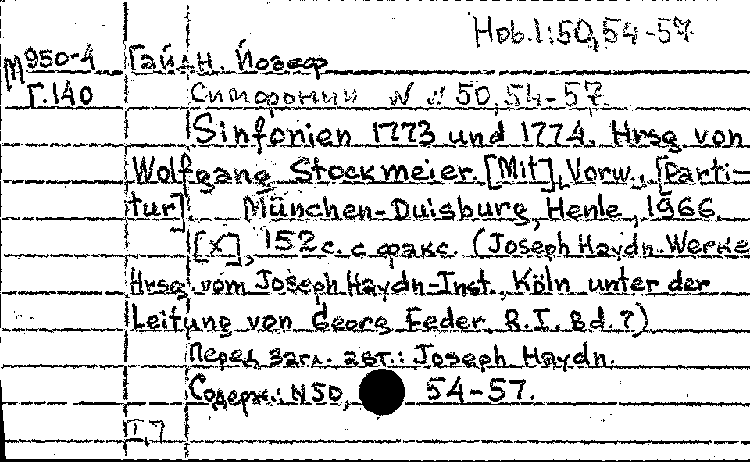 Hob.I:50,54-57.
М950-4 Гайдн, Йозеф
Г.140 Симфонии N N 50,54-57.
Sinfonien 1773 und 1774. Hrsg von
Wolfgang Stockmeier. [Mit] Vorw., [Parti-
tur]. München-Duisburg, Henle, 1966.
[X], 152 с. с факс. (Joseph Haydn. Werke
Hrsg. vom Joseph Haydn-Inst., Köln unter der
Leitung von Georg Feder. R.I. Bd.7)
Перед загл. авт.: Joseph Haydn.
Содерж.: N 50, 54-57.
I,7